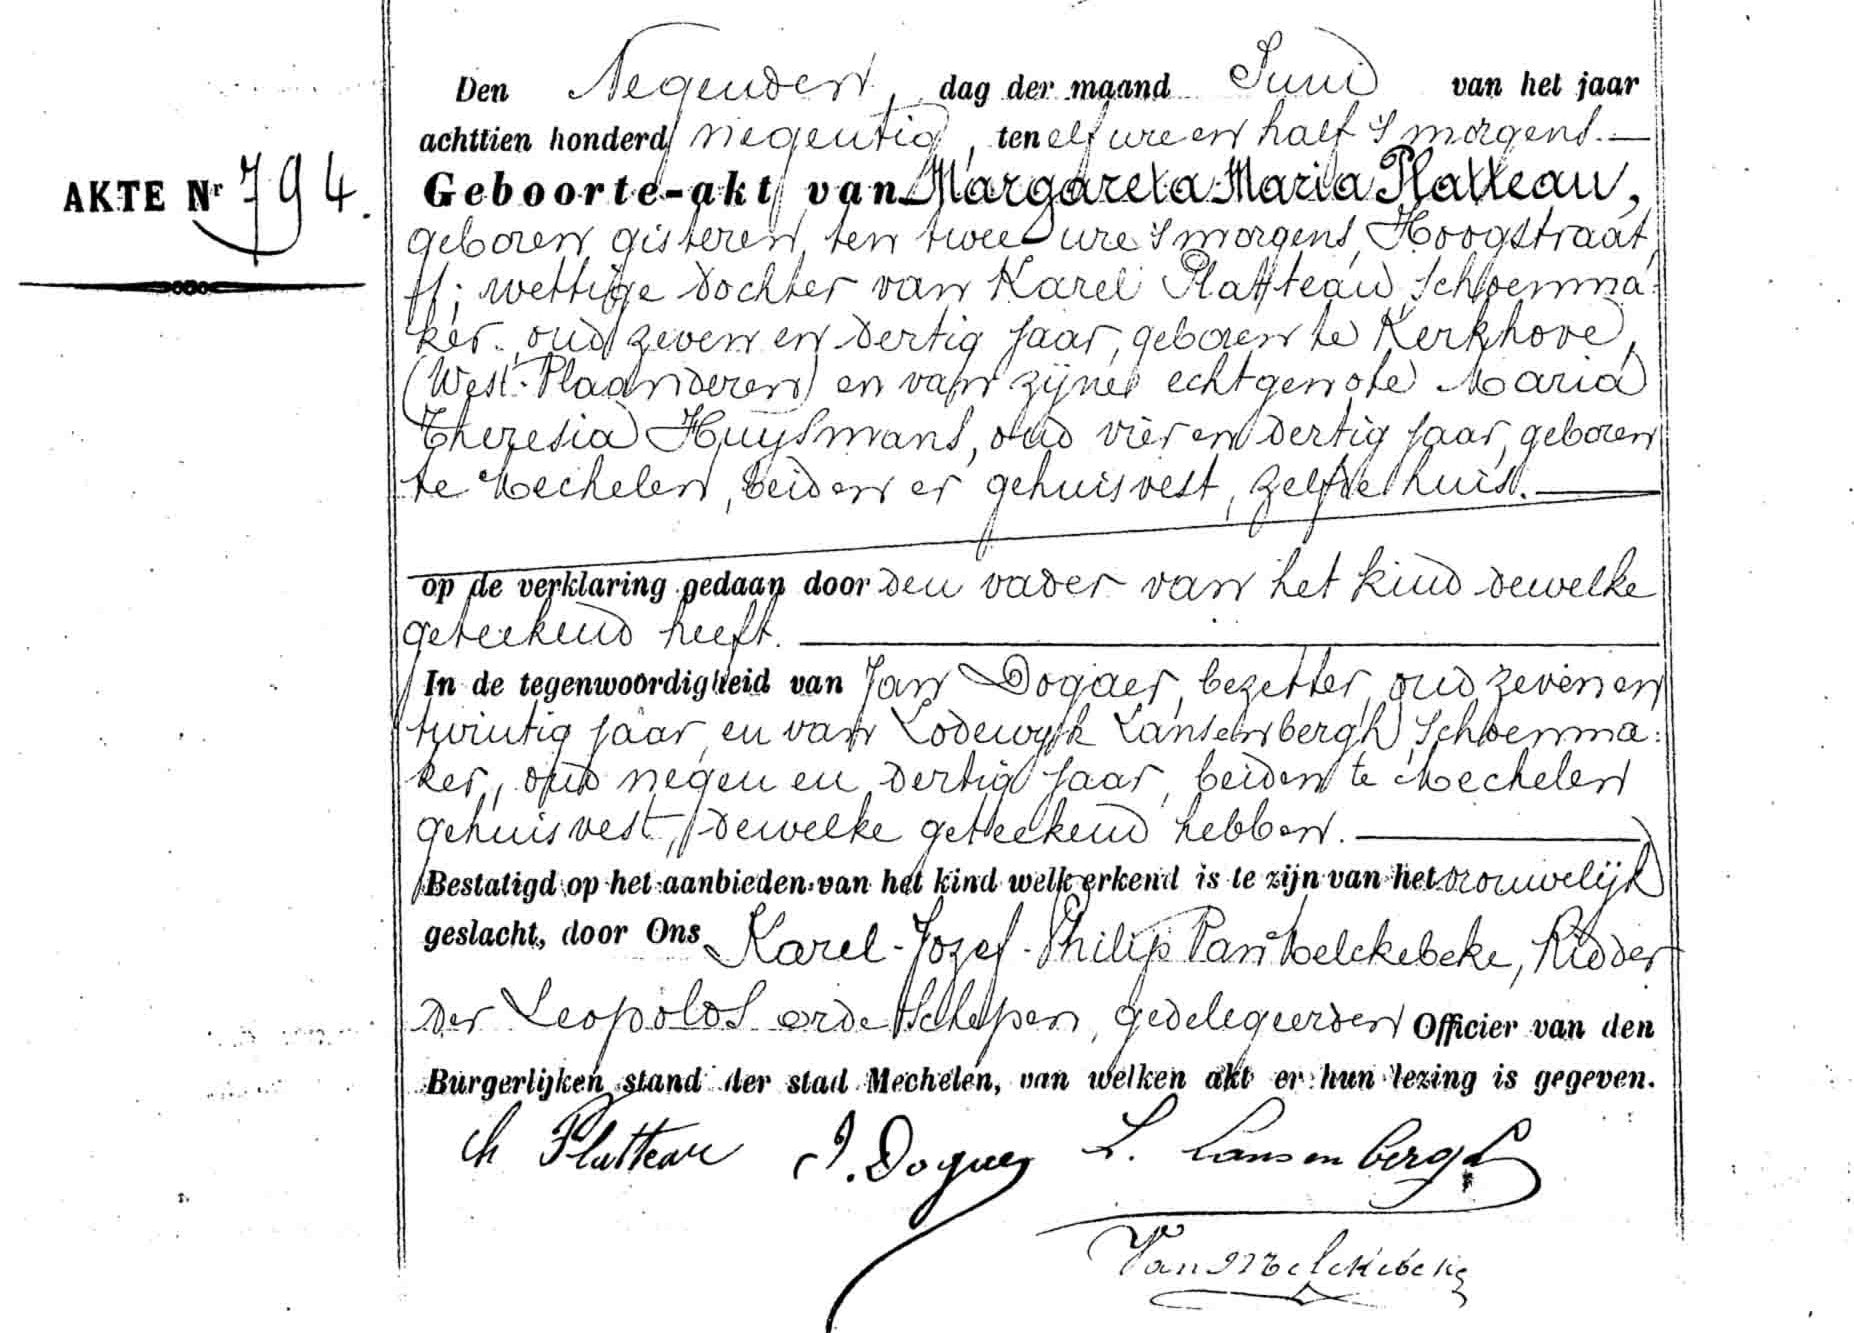 Den Negenden dag der maand Juni van het jaar
achttien honderd negentig, ten elf ure en half 's morgens.
AKTE Nr 794.
Geboorte-akt van Margareta Maria Platteau,
geboren gisteren ten twee ure 's morgens, Hoogstraat,
; wettige dochter van Karel Platteau, schoenma-
ker, oud zeven en dertig jaar, geboren te Kerkhove,
(West-Vlaanderen) en van zijne echtgenote Maria
Theresia Huysmans, oud vier en dertig jaar, geboren
te Mechelen, beiden er gehuisvest, zelfde huis.
op de verklaring gedaan door den vader van het kind dewelke
geteekend heeft.
In de tegenwoordigheid van Jan Dogaer, bezetter, oud zeven en
twintig jaar en van Lodewyk Lansenbergh, schoenma:
ker, oud negen en dertig jaar, beiden te Mechelen
gehuisvest, dewelke geteekend hebben.
Bestatigd op het aanbieden van het kind welk erkend is te zijn van het vrouwelijk
geslacht, door Ons Karel-Jozef-Philip Van Melckebeke, Ridder
der Leopolds orde Schepen, gedelegeerden Officier van den
Burgerlijken stand der stad Mechelen, van welken akt er hun lezing is gegeven.
Ch Platteau J. Dogaer L. Lansenbergh
Van Melckebeke